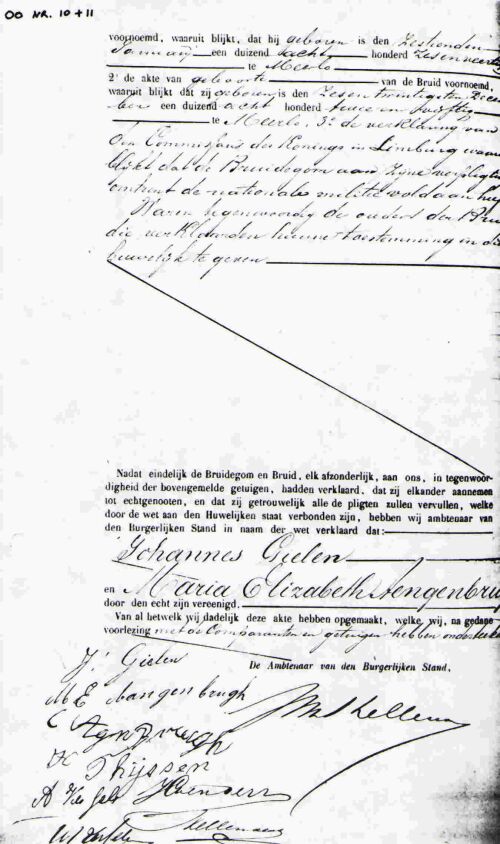 OO NR. 10+11
voornoemd, waaruit blijkt, dat hij geboren is den Zestienden
Januarij een duizend acht honderd zesenveertig
te Meerlo
2° de akte van geboorte van de Bruid voornoemd,
waaruit blijkt dat zij geboren is den Zesentwintigsten Decem
ber een duizend acht honderd twee en vijftig
te Meerlo, 3° de verklaring van
den Commissaris des Konings in Limburg waaruit
blijkt dat de Bruidegom aan zijne verpligting
omtrent de nationale militie voldaan heeft
Waren tegenwoordig de ouders der Bruid
die verklaarden hunne toestemming in dit
huwelijk te geven
Nadat eindelijk de Bruidegom en Bruid, elk afzonderlijk, aan ons, in tegenwoor-
digheid der bovengemelde getuigen, hadden verklaard, dat zij elkander aannemen
tot echtgenooten, en dat zij getrouwelijk alle de pligten zullen vervullen, welke
door de wet aan den Huwelijken staat verbonden zijn, hebben wij ambtenaar van
den Burgerlijken Stand in naam der wet verklaard dat:
Johannes Gielen
en Maria Elizabeth
door den echt zijn vereenigd.
Van al hetwelk wij dadelijk deze akte hebben opgemaakt, welke wij, na gedane
voorlezing met de Comparanten en getuigen hebben
J Gielen
De Ambtenaar van den Burgerlijken Stand,
M E
Thijssen